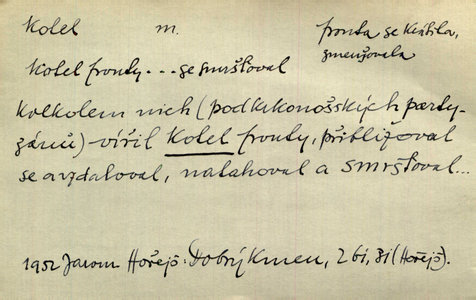 Kotel m. fronta se krátila,
zmenšovala
Kotel fronty... se smršťoval
Kolkolem nich (podkrkonošských party-
zánů) vířil kotel fronty, přibližoval
se a vzdaloval, natahoval a smršťoval...
1952 Jarom Hořejš: Dobrý Kmen, 261, 31 (Hořejš).